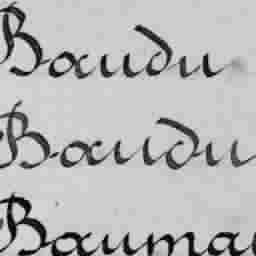 Baudu
Baudu
Bauma